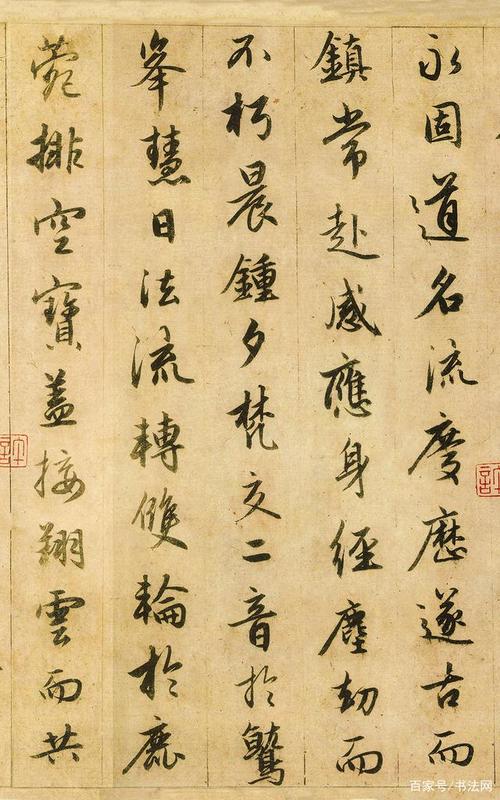 永固道名流慶歷遂古而
鎮常赴感應身經塵劫而
不朽晨鍾夕梵交二音於鷲
峯慧日法流轉雙輪於鹿
菀排空寶蓋接翔雲而共
百家号/书法网